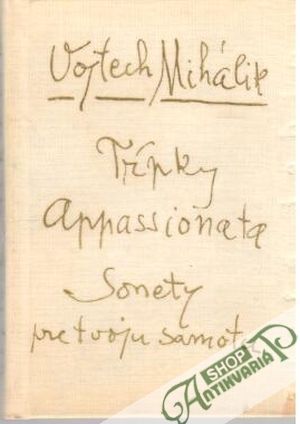 Vojtech Mihálik
Tŕpky
Appassionata
Sonety
pre tvoju samotu
SHOP
Antikvariát